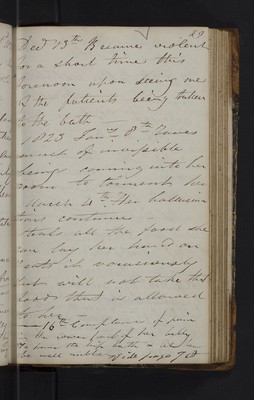 29
Decr 13th Became violent
for a short time this
forenoon upon seeing one
of the patients being taken
to the bath —
1823 Jany 8th Fancies
of invisible
beings coming into her
room to torment her
March 4th Her hallucina
tions continue —
steals all the food she
can lay her hand on
eats it voraciously
but will not take the
food that is allowed
to her —
— 16th Complains of pain
in the lower part of her belly
To have the hip bath &
vide page 78